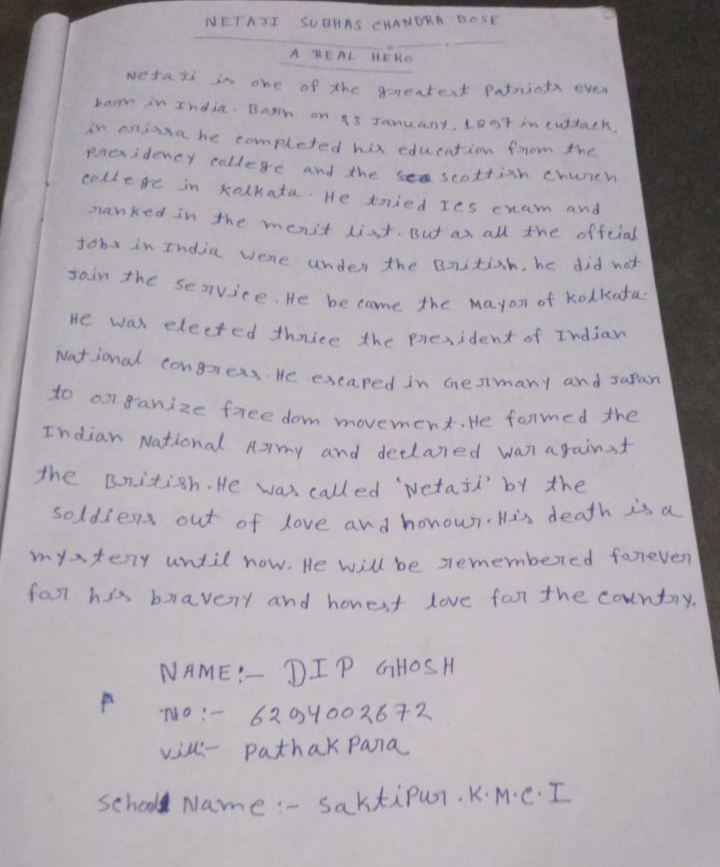 NETAJI SUBHAS CHANDRA BOSE
A REAL HERO
Netaji is one of the greatest Patriots ever
born in India. Born on 23 January, 1897 in cuttack,
in orissa he completed his education from the
Presidency college and the scottish church
college in Kolkata. He tried Ics exam and
ranked in the merit list. But as all the offcial
Jobs in India were under the British, he did not
Join the service. He be came the Mayor of Kolkata.
He was elected thrice the President of Indian
National congress. He escaped in Germany and Japan
to organize free dom movement. He formed the
Indian National Army and declared war against
the British. He was called 'Netaji' by the
soldiers out of love and honour. His death is a
mystery until now. He will be remembered forever
for his bravery and honest love for the country.
NAME:- DIP GHOSH
P No:- 6294002672
vill:- Pathak Para
School Name:- saktipur.K.M.C.I